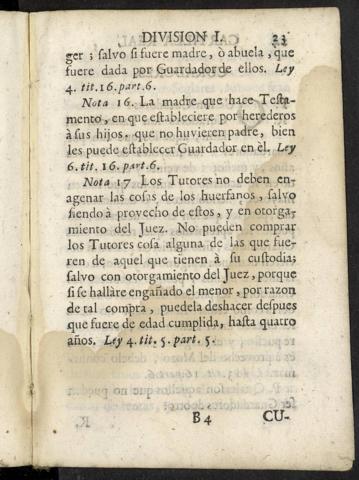 DIVISION I. 23
ger ; salvo si fuere madre, ò abuela, que
fuere dada por Guardador de ellos. Ley
4. tit. 16. part. 6.
Nota 16. La madre que hace Testa-
mento, en que estableciere por herederos
à sus hijos, que no huvieren padre, bien
les puede establecer Guardador en èl. Ley
6. tit. 16. part. 6.
Nota 17. Los Tutores no deben en-
agenar las cosas de los huerfanos, salvo
siendo à provecho de estos, y en otorga-
miento del Juez. No pueden comprar
los Tutores cosa alguna de las que fue-
ren de aquel que tienen à su custodia;
salvo con otorgamiento del Juez, porque
si se hallàre engañado el menor, por razon
de tal compra, puedela deshacer despues
que fuere de edad cumplida, hasta quatro
años. Ley 4. tit. 5. part. 5.
B 4 CU-